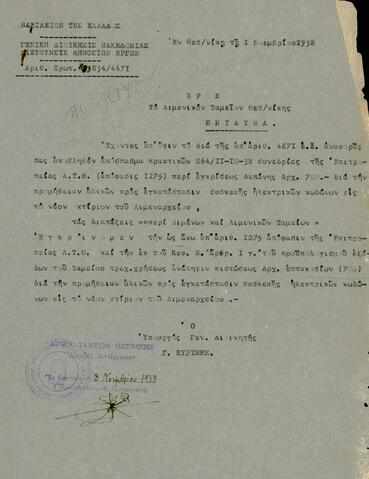 ΒΑΣΙΛΕΙΟΝ ΤΗΣ ΕΛΛΑΔΟΣ
ΓΕΝΙΚΗ ΔΙΟΙΚΗΣΙΣ ΜΑΚΕΔΟΝΙΑΣ
ΔΙΕΥΘΥΝΣΙΣ ΔΗΜΟΣΙΩΝ ΕΡΓΩΝ
Αριθ. Πρωτ.
Ἐν Θεσ/νίκῃ τῇ 1 Νοεμβρίου 1938
Π Ρ Ο Σ
Τὸ Λιμενικὸν Ταμεῖον Θεσ/νίκης
Ε Ν Τ Α Υ Θ Α.
Ἔχοντες ὑπ'ὄψιν τὸ διὰ τῆς ὑπ'ἀριθ. 4871 ἐ.ἔ. ἀναφορᾶς
σας ὑποβληθὲν ἀπόσπασμα πρακτικῶν 264/11-10-38 συνεδρίας τῆς Ἐπιτρο-
πείας Λ.Τ.Θ. (ἀπόφασις 1275) περὶ ἐγκρίσεως δαπάνης δρχ. 700.- διὰ τὴν
προμήθειαν ὑλικῶν πρὸς ἐγκατάστασιν συσκευῆς ἠλεκτρικῶν κωδώνων εἰς
τὸ νέον κτίριον τοῦ Λιμεναρχείου,
τὰς διατάξεις ««περὶ Λιμένων καὶ Λιμενικῶν Ταμείων»
Ἐ γ κ ρ ί ν ο μ ε ν τὴν ὡς ἄνω ὑπ'ἀριθ. 1275 ἀπόφασιν τῆς Ἐπιτρο-
πείας Λ.Τ.Θ. καὶ τὴν ἐκ τοῦ Κεφ. ἄρθρ. 1 γ. τοῦ προϋπολογισμοῦ ἐξό-
δων τοῦ Ταμείου τρεχ.χρήσεως ἀνάληψιν πιστώσεως δρχ. ἑπτακοσίων (700)
διὰ τὴν προμήθειαν ὑλικῶν πρὸς ἐγκατάστασιν συσκευῆς ἠλεκτρικῶν κωδώ-
νων εἰς τὸ νέον κτίριον τοῦ Λιμεναρχείου .-
Ο
Ὑπουργὸς Γεν. Διοικητὴς
Γ. ΚΥΡΙΜΗΣ.
ΤΑΜΕΙΟΝ ΘΕΣ/ΝΙΚΗΣ
3 Νοεμβρίου 1938